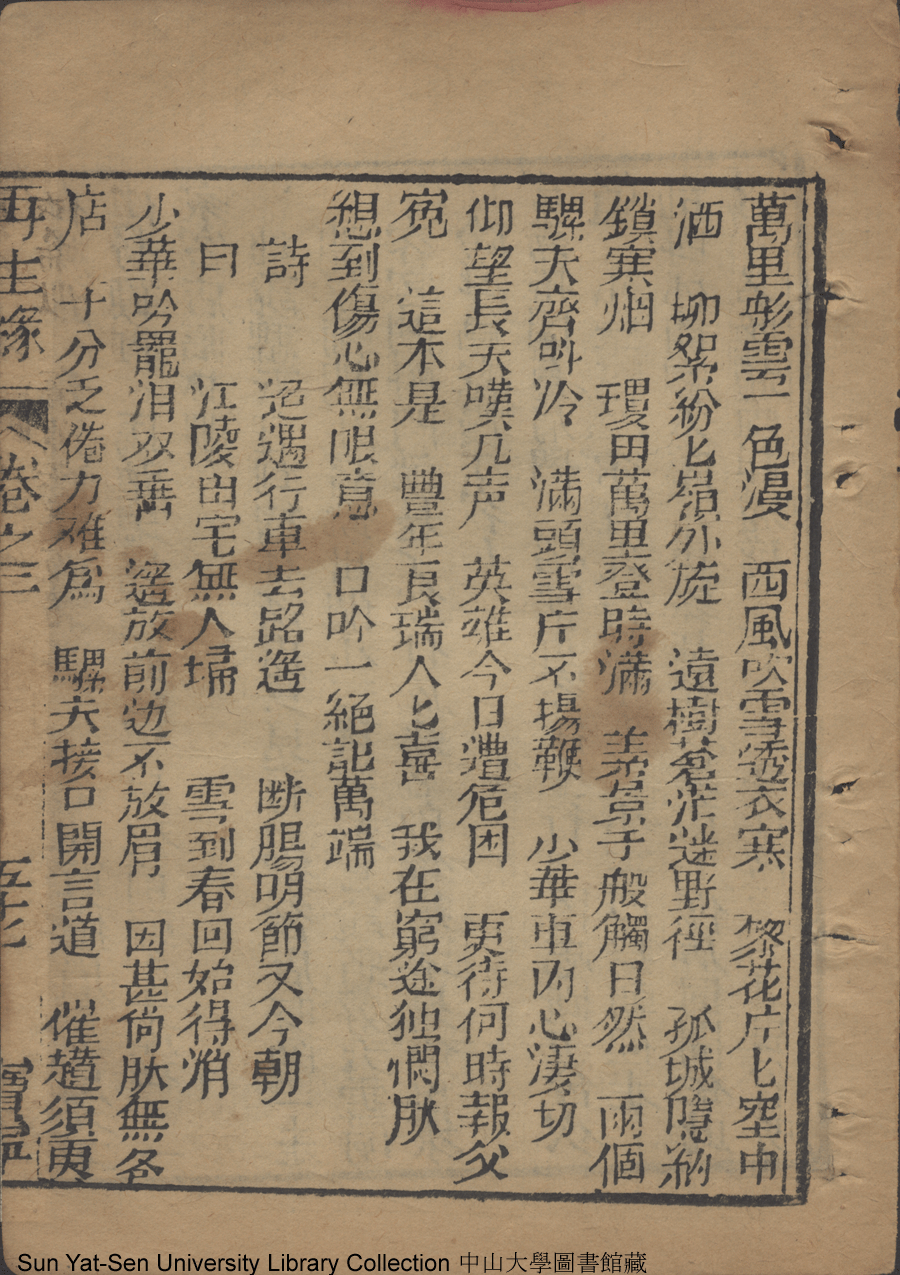 萬里彤雲一色漫　西風吹雪透衣寒　黎花片匕空中
洒　柳絮紛匕岩外旋　遠樹蒼茫迷野徑　孤城隱約
鎖寒烟　瓊田萬里登時滿　景子般觸日然　兩個
騾夫齊呌冷　滿頭雪片不揚鞭　少華車內心淒切
仰望長天嘆几声　英雄今日遭危困　更待何時報父
寃　這本是　豐年良瑞人匕喜　我在窮途独悶肰
想到傷心無限意　口吟一絕記萬端
詩　迢遞行車去路遙　断腸明節又今朝
曰　江陵田宅無人埽　雪到春回始得消
少華吟罷泪双垂　遙放前边不放眉　因甚倘肰無客
店　十分乏倦力难為　騾夫接口開言道　催趲須臾
再生緣　卷之三　五十七　寶寧
Sun Yat-Sen University Library Collection 中山大學圖書館藏